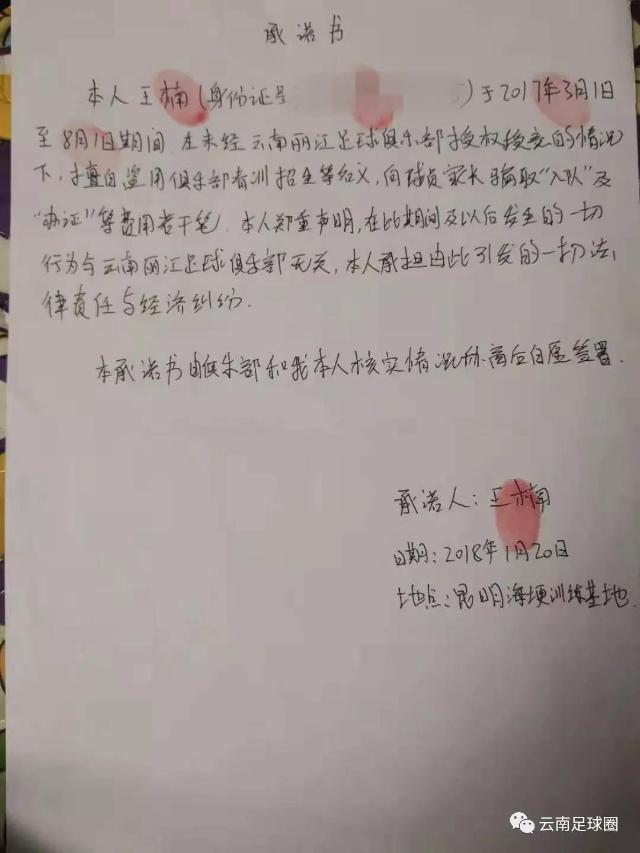 承诺书
本人王楠(身份证号 )于2017年3月1日
至8月1日期间,在未经云南丽江足球俱乐部授权接受的情况
下,擅自盗用俱乐部春训招生等名义,向球员家长骗取“入队”及
“办证”等费用若干笔.本人郑重声明,在此期间及以后发生的一切
行为与云南丽江足球俱乐部无关,本人承担由此引发的一切法
律责任与经济纠纷.
本承诺书由俱乐部和我本人核实情况 后自愿签署.
承诺人:王楠
日期:2018年1月20日
地点:昆明海埂训练基地.
云南足球圈